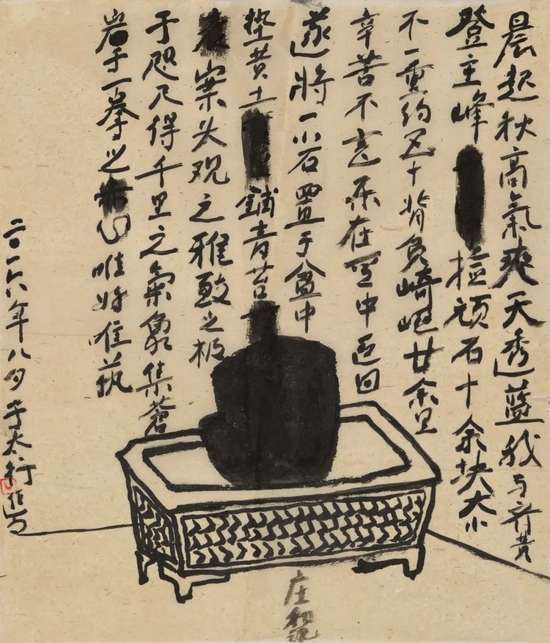 晨起秋高氣爽天透蓝我与
登主峰捡顽石十余块大小
不一重约五十背负崎岖廿余里
辛苦不言乐在其中返回
遂將一小石置于盆中
垫黄土铺青苔
案头观之雅致之极
于咫尺得千里之氣象集蒼
岩于一拳之心唯
二〇一六年八月于太行
庄